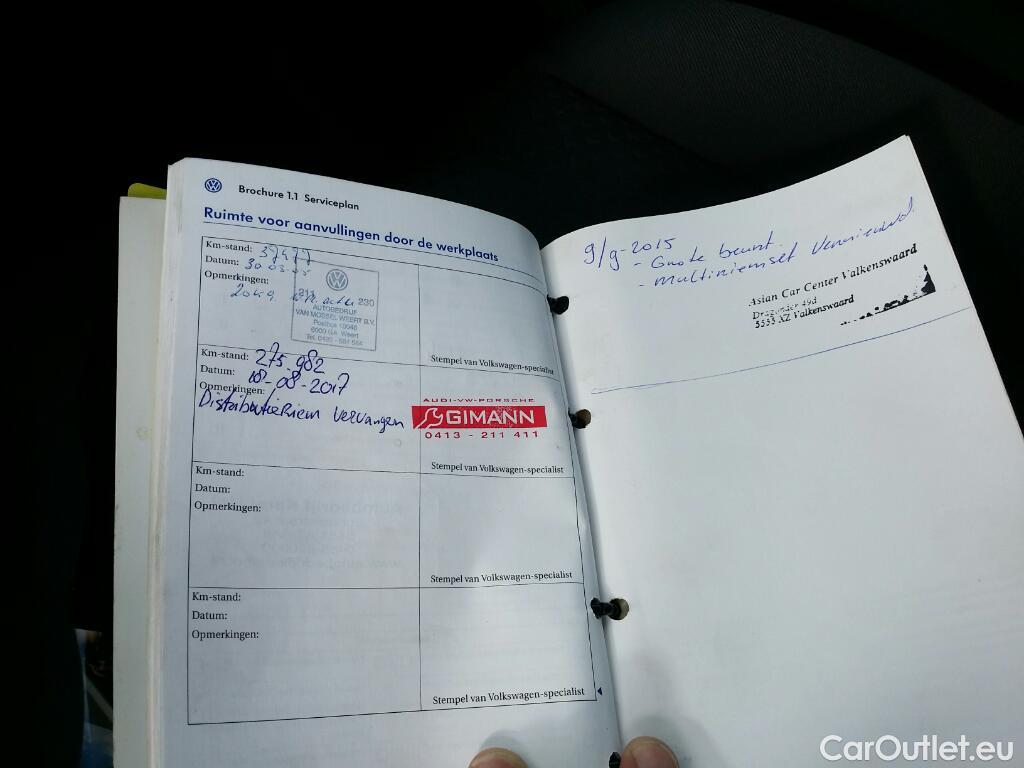 Brochure 1.1 Serviceplan
Ruimte voor aanvullingen door de werkplaats
Km-stand: 37477
Datum: 30-03-05
Opmerkingen:
211 230
AUTOBEDRIJF
VAN MOSSEL WEERT B.V.
Postbus 10046
6000 GA Weert
Tel. 0495 - 561 564
Stempel van Volkswagen-specialist
Km-stand: 275.982
Datum: 18-08-2017
Opmerkingen:
Distributieriem vervangen
AUDI-VW-PORSCHE
GIMANN
0413 - 211 411
Stempel van Volkswagen-specialist
Km-stand:
Datum:
Opmerkingen:
Stempel van Volkswagen-specialist
Km-stand:
Datum:
Opmerkingen:
Stempel van Volkswagen-specialist
9/9-2015
- Grote beurt.
- Multiriemset Vernieuwd.
Asian Car Center Valkenswaard
Dragonder 49d
5553 XZ Valkenswaard
CarOutlet.eu